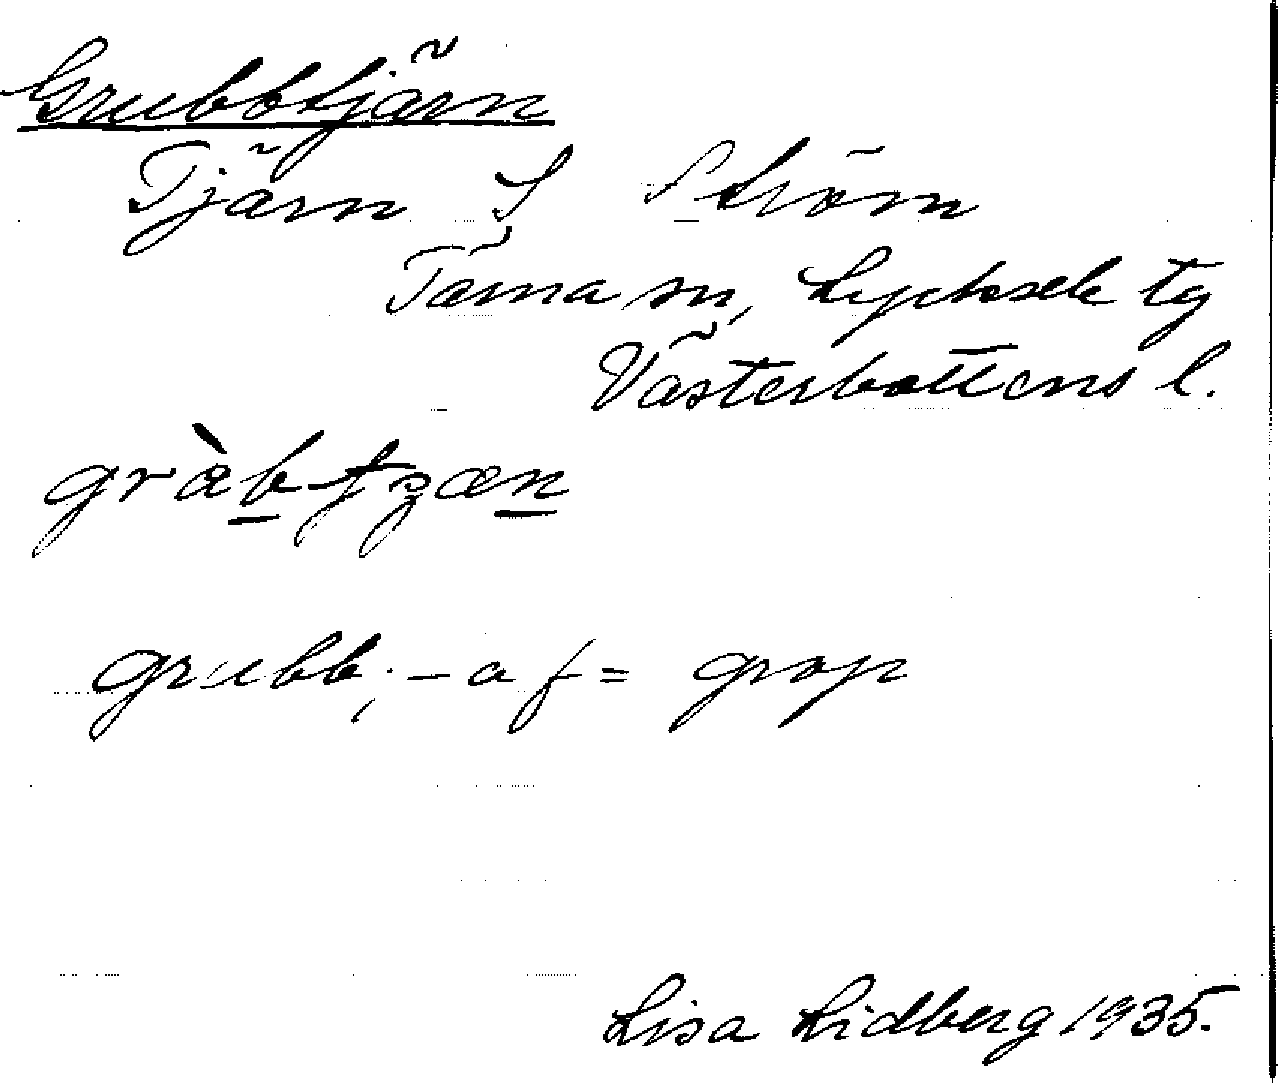 Grubbtjärn
Tjärn S Ström
Tärna sn, Lycksele tg
Västerbottens l.
grub, -a f = grop
Lisa Lidberg 1935.